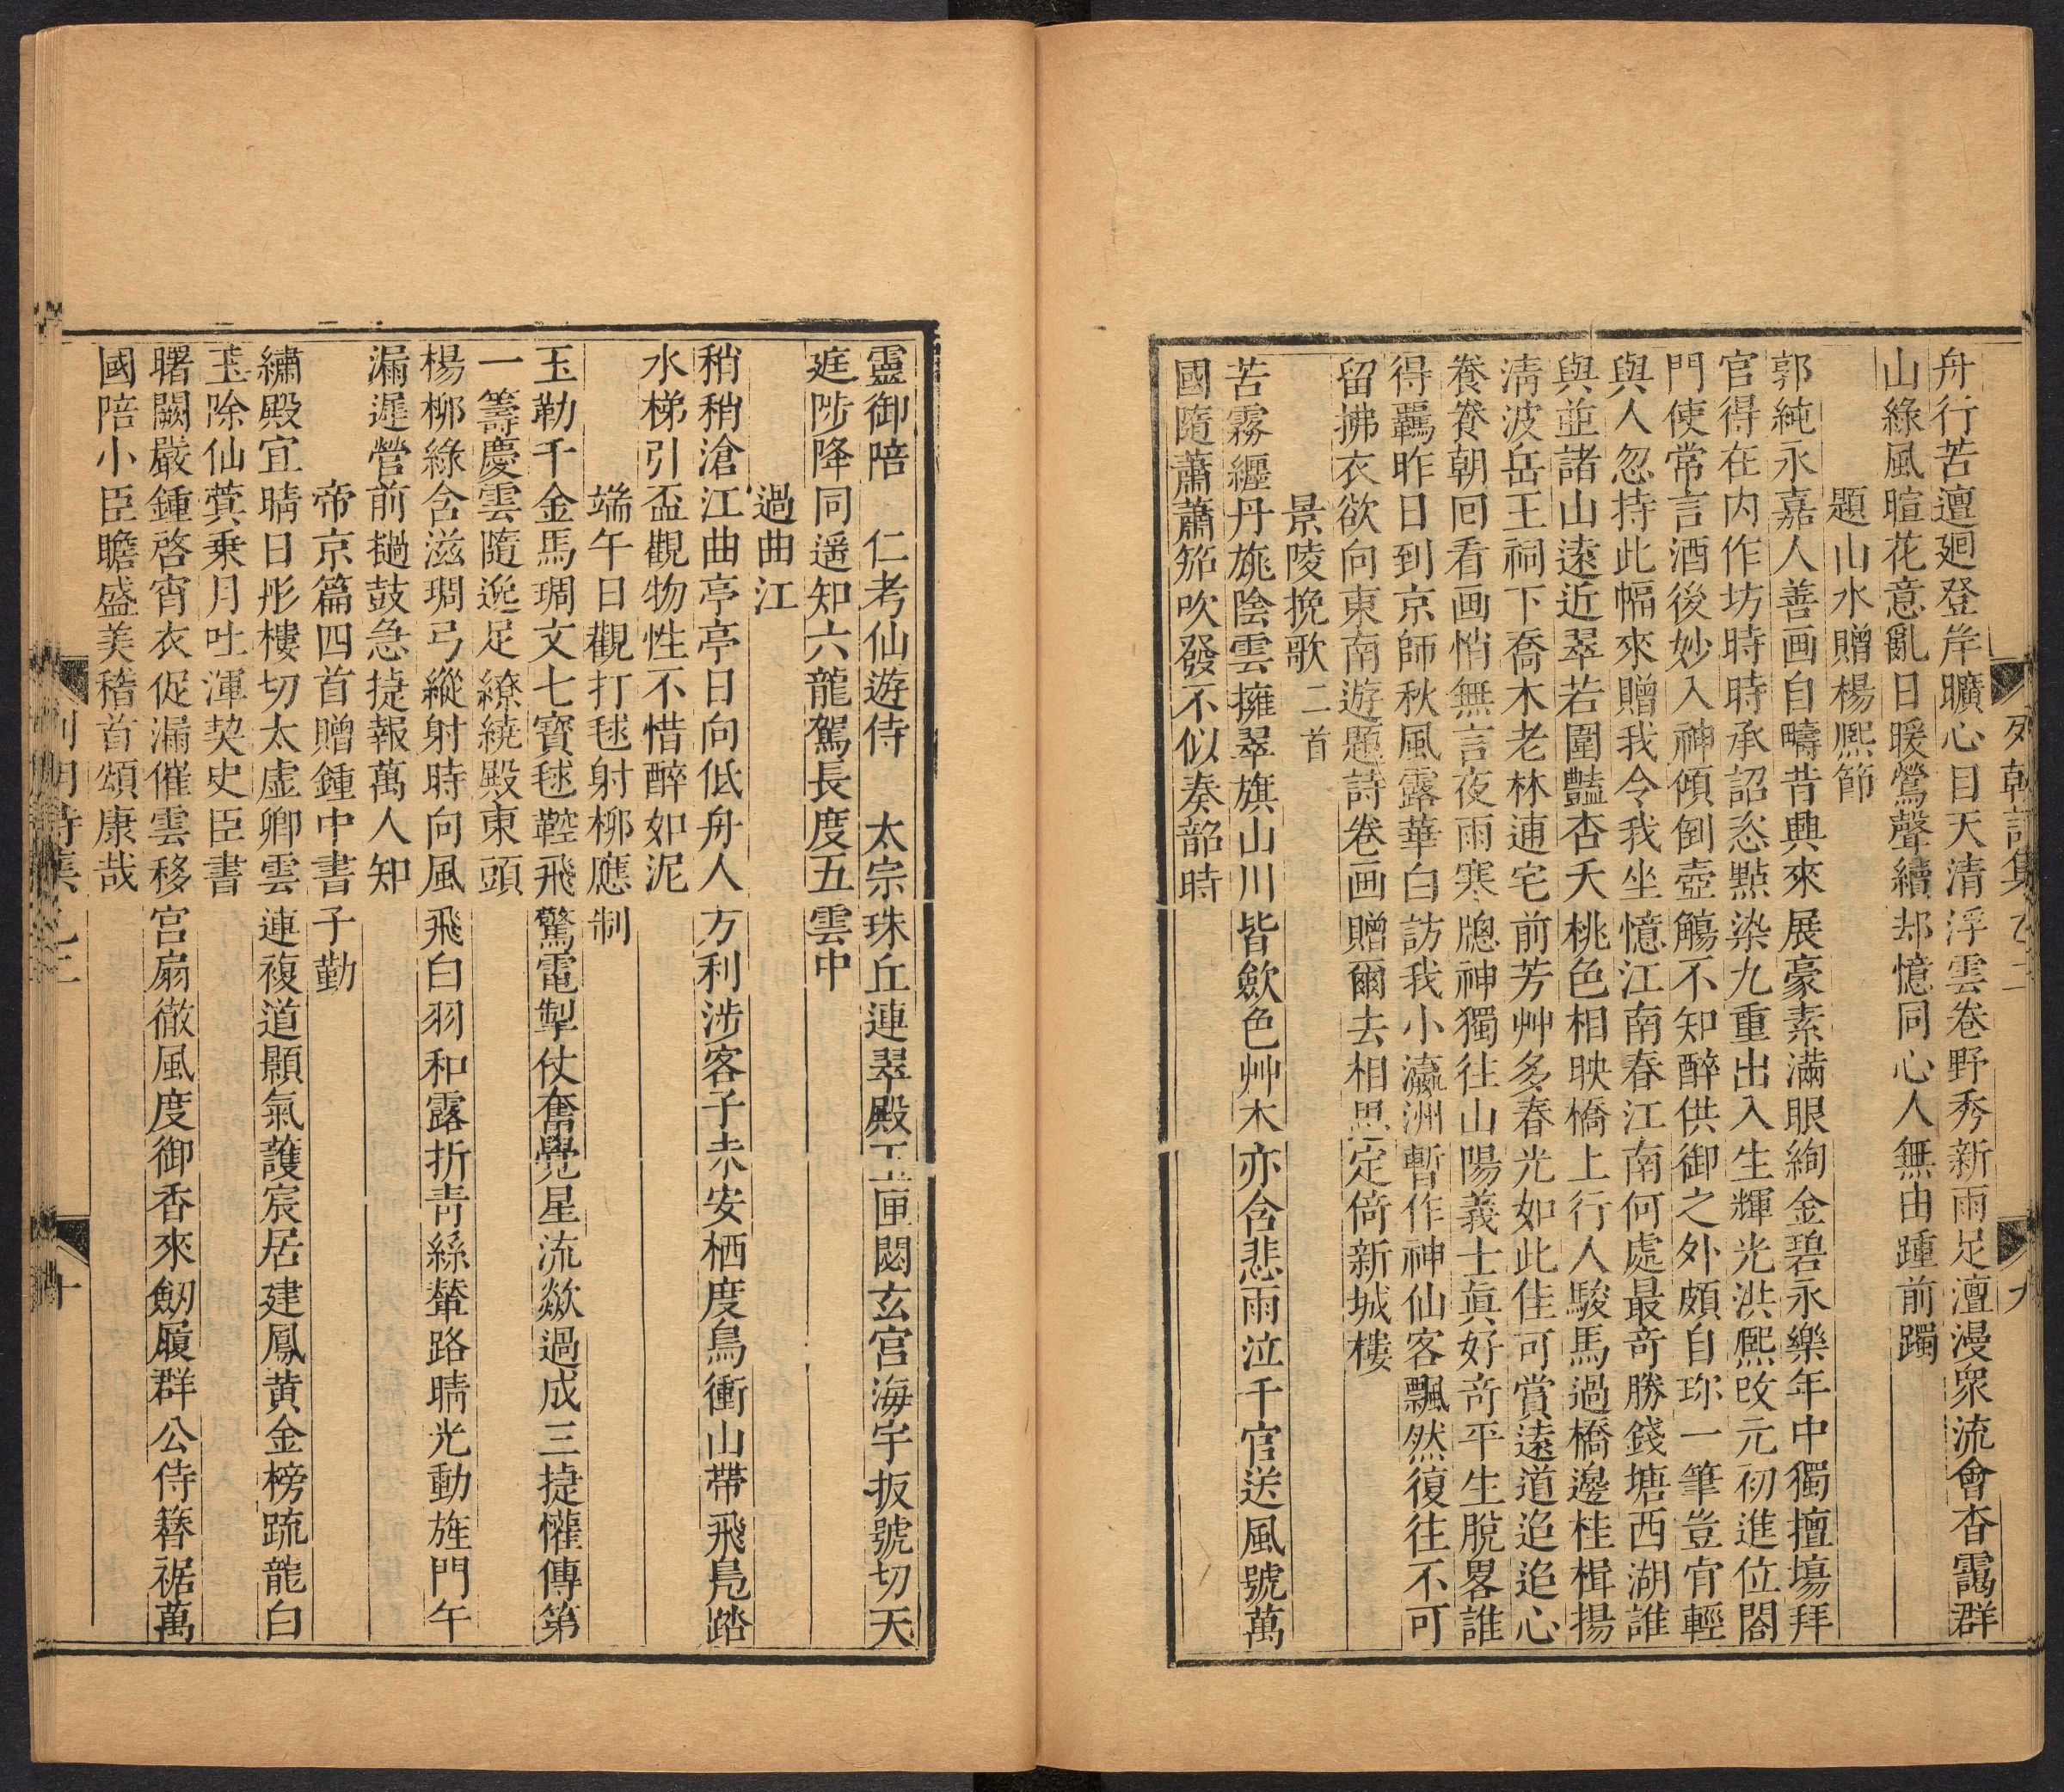 列朝詩集 乙二 九
舟行苦邅廻登岸曠心目天清浮雲卷野秀新雨足澶漫衆流會杳靄群
山綠風暄花意亂日暖鶯聲續却憶同心人無由踵前躅
題山水贈楊熙節
郭純永嘉人善画自疇昔興來展豪素滿眼絢金碧永樂年中獨擅塲拜
官得在内作坊時時承詔恣點染九重出入生輝光洪熙攺元初進位閤
門使常言酒後妙入神傾倒壺觴不知醉供御之外頗自珎一筆豈肎輕
與人忽持此幅來贈我令我坐憶江南春江南何處最奇勝錢塘西湖誰
與並諸山遠近翠若圍豔杏夭桃色相映橋上行人駿馬過橋邊桂楫揚
淸波岳王祠下喬木老林逋宅前芳艸多春光如此佳可賞遠道迢迢心
養養朝回看画悄無言夜雨寒牕神獨往山陽義士眞好奇平生脫畧誰
得羈昨日到京師秋風露華白訪我小瀛洲暫作神仙客飄然復往不可
留拂衣欲向東南遊題詩卷画贈爾去相思定倚新城樓
景陵挽歌 二首
苦霧纒丹旐陰雲擁翠旗山川皆歛色艸木亦含悲雨泣千官送風號萬
國隨蕭蕭笳吹發不似奏韶時
靈御陪 仁考仙遊侍 太宗珠丘連翠殿玉匣閟玄宫海宇扳號切天
庭陟降同遥知六龍駕長度五雲中
過曲江
稍稍滄江曲亭亭日向低舟人方利涉客子未安栖度鳥衝山帶飛凫踏
水梯引盃觀物性不惜醉如泥
端午日觀打毬射柳應制
玉勒千金馬琱文七寶毬鞚飛驚電掣仗奮覺星流歘過成三捷懽傳第
一籌慶雲隨逸足繚繞殿東頭
楊柳綠含滋琱弓縱射時向風飛白羽和露折靑絲輦路晴光動旌門午
漏遲營前撾鼓急捷報萬人知
帝京篇四首贈鍾中書子勤
繡殿宜晴日彤樓切太虛卿雲連複道顥氣護宸居建鳳黄金榜疏龍白
玉除仙蓂乗月吐渾契史臣書
曙闕嚴鍾啓宵衣促漏催雲移宮扇徹風度御香來劒履群公侍簪裾萬
國陪小臣瞻盛美稽首頌康哉
列朝詩集 乙二 十